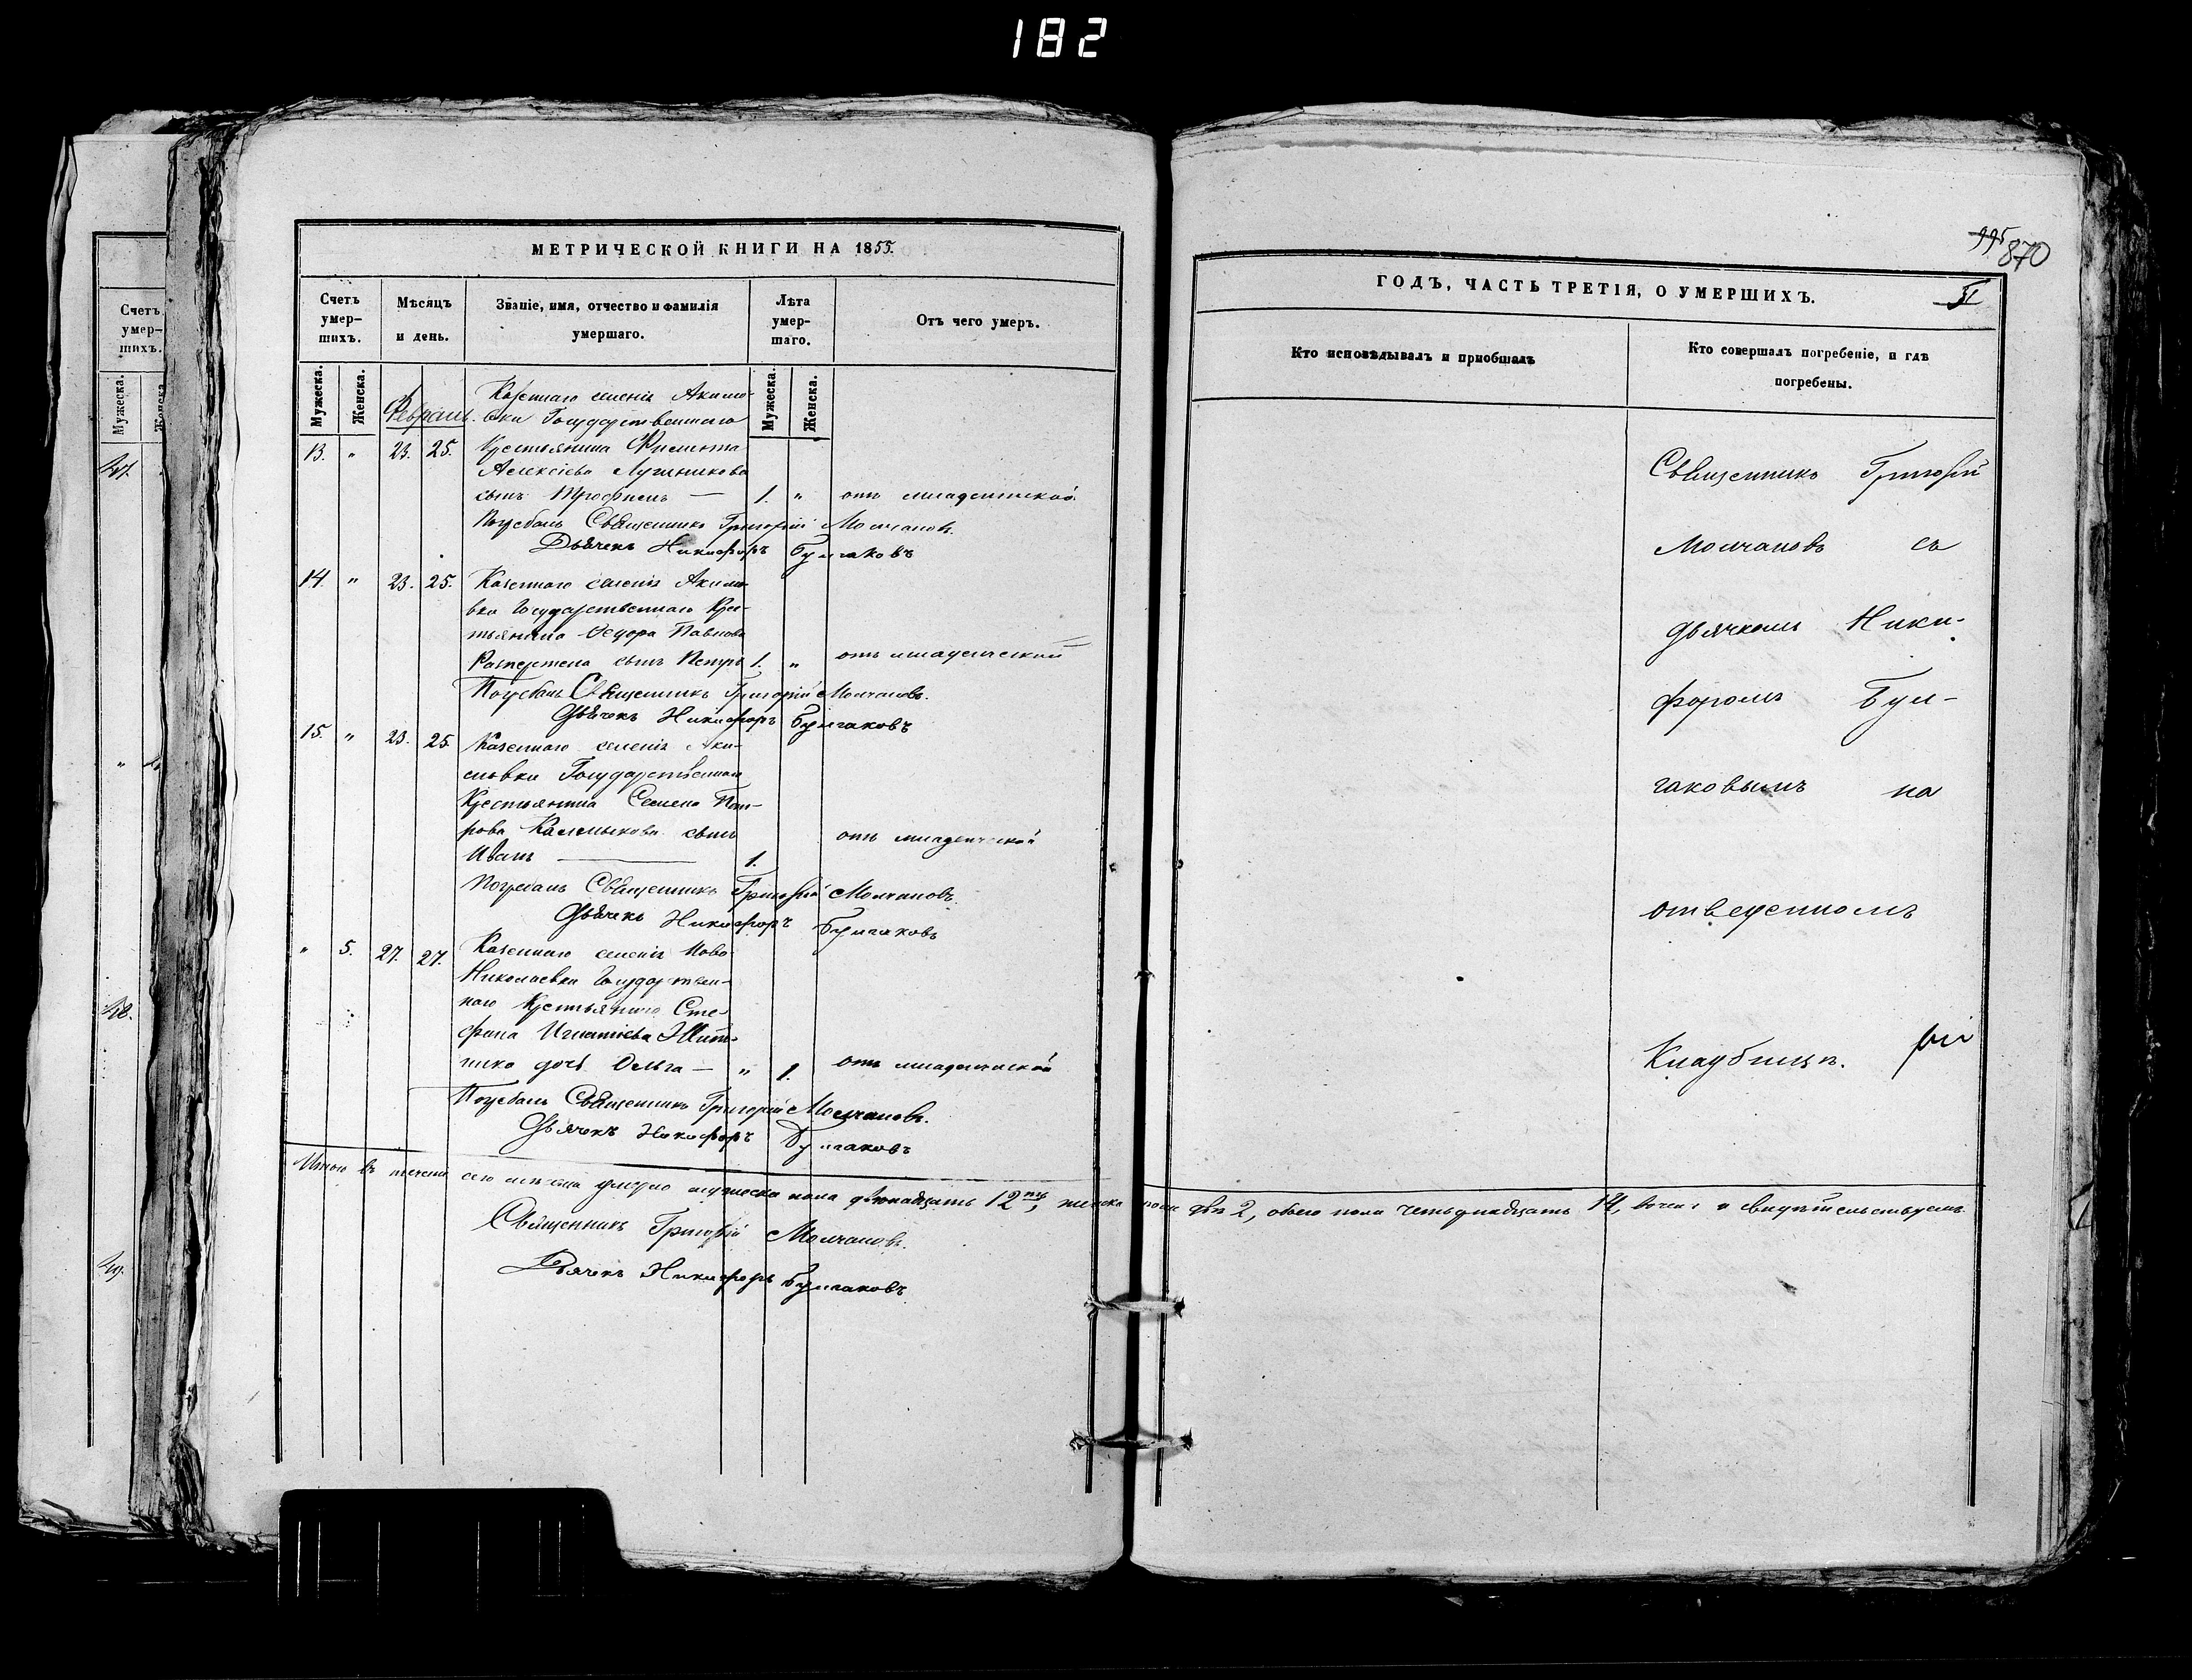 182
МЕТРИЧЕСКОЙ КНИГИ НА 1855.
Счетъ умер-шихъ.
Мѣсяцъ и день.
Званіе, имя, отчество и фамилія умершаго.
Лѣта умер-шаго.
Отъ чего умеръ.
Мужеска.
Женска.
Мужеска.
Женска.
Февраль.
Казеннаго селенія Акимо-
вки Государственнаго
13. " 23. 25. Крестьянина Филиппа
Алексѣева Лучникова
сынъ Трофимъ — 1. " отъ младенческой.
Погребалъ Священникъ Григорій Молчановъ.
Дьячекъ Никифоръ Булгаковъ
14. " 23. 25. Казеннаго селенія Акимо-
вки Государственнаго Крес-
тьянина Ѳедора Павлова
сынъ Петръ 1. " отъ младенческой
Погребалъ Священникъ Григорій Молчановъ.
Дьячекъ Никифоръ Булгаковъ
15. " 23. 25. Казеннаго селенія Аки-
мовки Государственнаго
Крестьянина Семена
Калмыкова сынъ отъ младенческой
Иванъ — 1.
Погребалъ Священникъ Григорій Молчановъ.
Дьячекъ Никифоръ Булгаковъ
" 5. 27. 27. Казеннаго селенія Ново-
Николаевки Государствен-
наго Крестьянина Сте-
фана Игнатіева
дочь Ольга — " 1. отъ младенческой
Погребалъ Священникъ Григорій Молчановъ.
Дьячекъ Никифоръ Булгаковъ
Итого въ теченіи сего мѣсяца умерло мужеска пола двѣнадцать 12ть, женска пола двѣ 2, обоего пола четырнадцать 14, въ чемъ и свидѣтельствуемъ
Священникъ Григорій Молчановъ.
Дьячекъ Никифоръ Булгаковъ
995
870
ГОДЪ, ЧАСТЬ ТРЕТІЯ, О УМЕРШИХЪ.
Кто исповѣдывалъ и пріобщалъ
Кто совершалъ погребеніе, и гдѣ погребены.
Священникъ Григорій
Молчановъ съ
дьячкомъ Ники-
форомъ Бул-
гаковымъ на
отведенномъ
Кладбищѣ.
Счетъ умер-шихъ.
Мужеска.
Женска.
47.
48.
49.